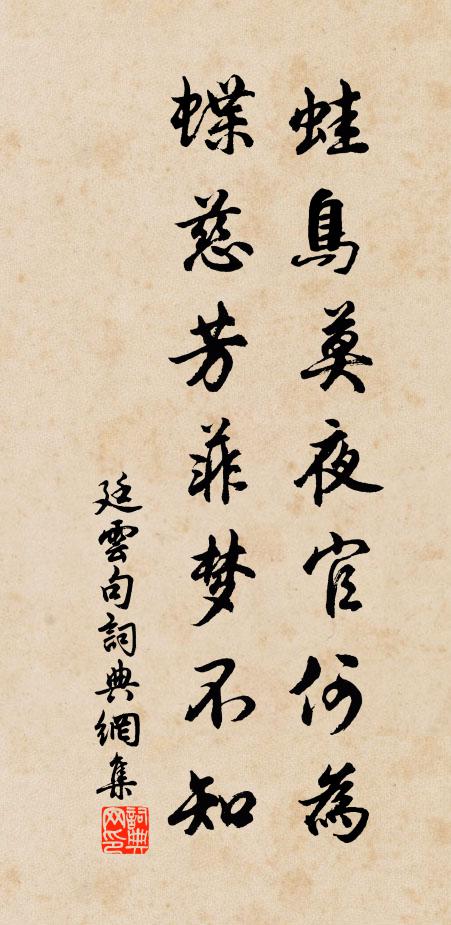 蛙鳥莫夜官何為
蝶慈芳菲梦不知
廷雲句詞典網集
詞典网印